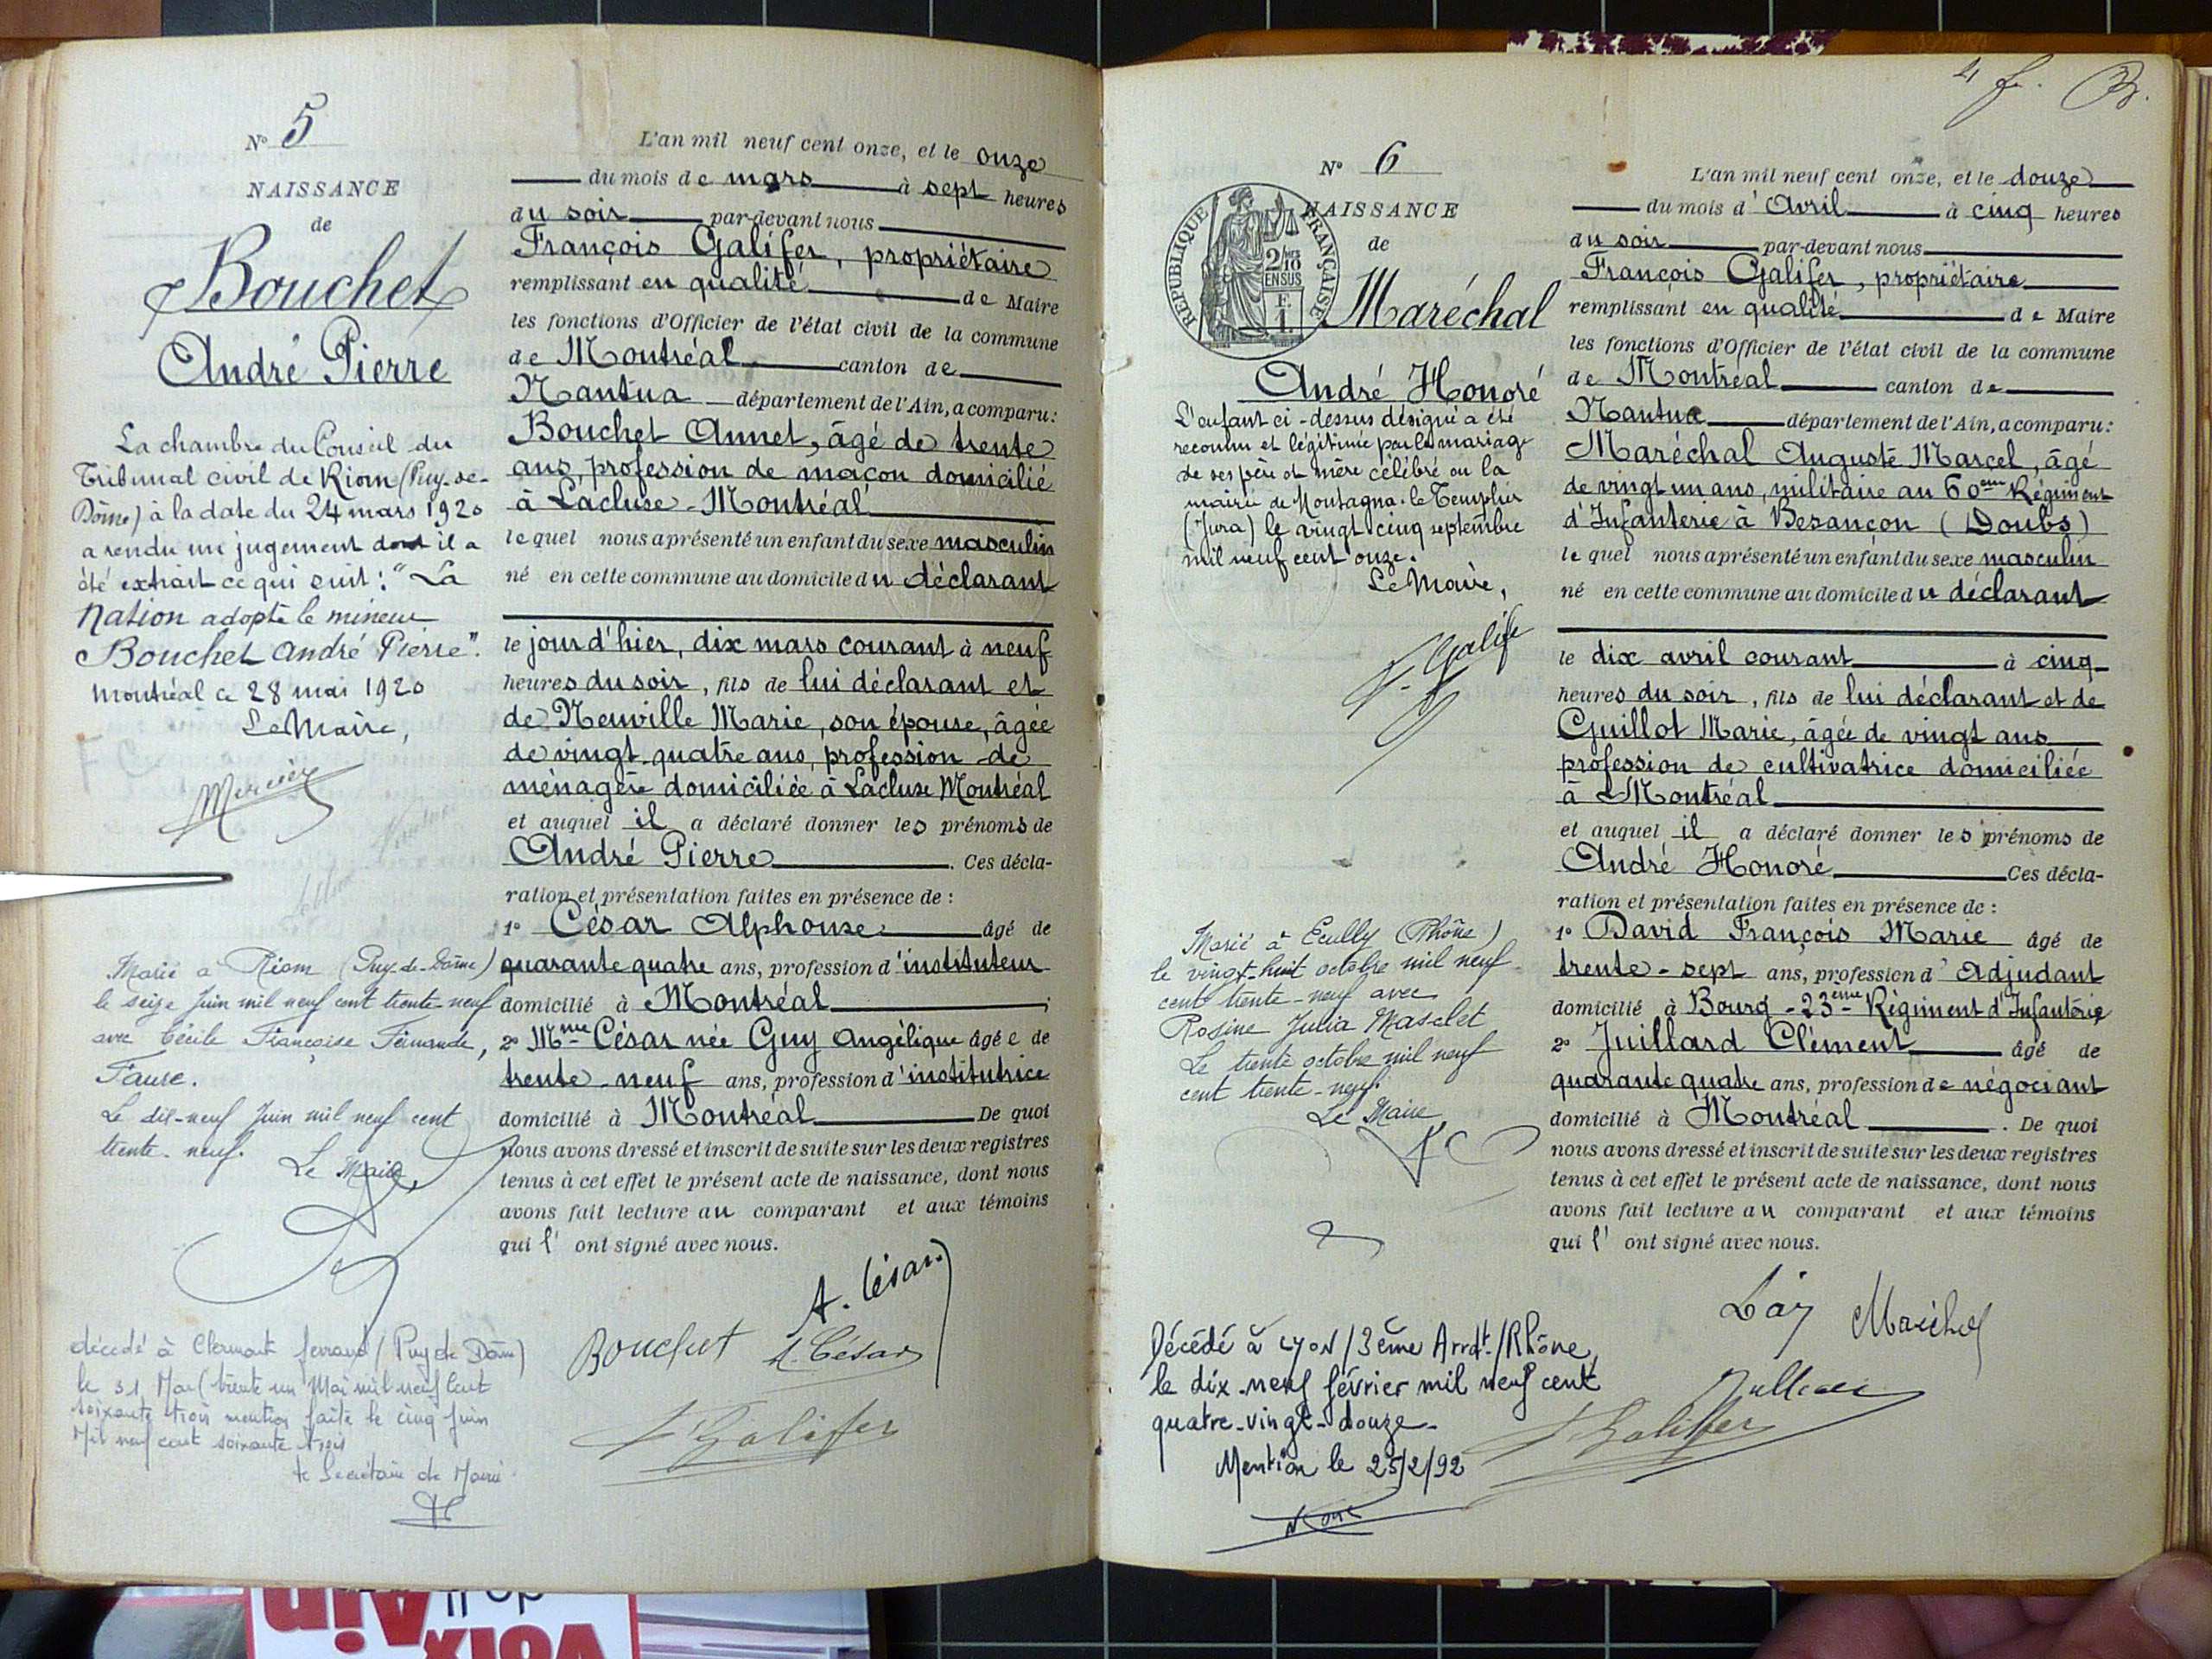 N° 5
NAISSANCE
de
Bouchet
André Pierre
La chambre du Conseil du
Tribunal civil de Riom (Puy-de-
Dôme) à la date du 24 mars 1920
a rendu un jugement dont il a
été extrait ce qui suit : "La
Nation adopte le mineur
Bouchet André Pierre".
Montréal ce 28 mai 1920
Le Maire,
Mercier
Marié à Riom (Puy-de-Dôme)
le seize Juin mil neuf cent trente-neuf
avec Cécile Françoise Fernande,
Faure.
Le dix-neuf Juin mil neuf cent
trente-neuf.
Le Maire,
décédé à Clermont ferrand (Puy de Dôme)
le 31 Mai (trente un Mai mil neuf Cent
soixante trois mention faite le cinq juin
Mil neuf cent soixante trois
le Secrétaire de Mairie
L'an mil neuf cent onze, et le onze
du mois de mars à sept heures
du soir par-devant nous
François Galifer, propriétaire
remplissant en qualité de Maire
les fonctions d'Officier de l'état civil de la commune
de Montréal canton de
Nantua département de l'Ain, a comparu :
Bouchet Annet, âgé de trente
ans, profession de maçon domicilié
à Lacluse-Montréal
lequel nous a présenté un enfant du sexe masculin
né en cette commune au domicile du déclarant
le jour d'hier, dix mars courant à neuf
heures du soir, fils de lui déclarant et
de Neuville Marie, son épouse, âgée
de vingt quatre ans, profession de
ménagère domiciliée à Lacluse Montréal
et auquel il a déclaré donner les prénoms de
André Pierre. Ces décla-
ration et présentation faites en présence de :
1° César Alphonse âgé de
quarante quatre ans, profession d'instituteur
domicilié à Montréal ;
2° Mme César née Guy Angélique âgée de
trente-neuf ans, profession d'institutrice
domicilié à Montréal De quoi
nous avons dressé et inscrit de suite sur les deux registres
tenus à cet effet le présent acte de naissance, dont nous
avons fait lecture au comparant et aux témoins
qui l' ont signé avec nous.
A. César
Bouchet A. César
F Galifer
4 f.
N° 6
NAISSANCE
de
RÉPUBLIQUE FRANÇAISE
2/10
EN SUS
Maréchal
André Honoré
L'enfant ci-dessus désigné a été
reconnu et légitimé par le mariage
de ses père et mère célébré en la
mairie de Montagna-le-Templier
(Jura) le vingt cinq septembre
mil neuf cent onze.
Le Maire,
F. Galife
Marié à Ecully (Rhône)
le vingt-huit octobre mil neuf
cent trente-neuf avec
Rosine Julia Masclet
Le trente octobre mil neuf
cent trente-neuf.
Le Maire,
Décédé à LYON/3ème Arrdt./Rhône,
le dix-neuf février mil neuf cent
quatre-vingt-douze-
Mention le 25/2/92
L'an mil neuf cent onze, et le douze
du mois d'Avril à cinq heures
du soir par-devant nous
François Galifer, propriétaire
remplissant en qualité de Maire
les fonctions d'Officier de l'état civil de la commune
de Montréal canton de
Nantua département de l'Ain, a comparu :
Maréchal Auguste Marcel, âgé
de vingt un ans, militaire au 60ème Régiment
d'Infanterie à Besançon (Doubs)
lequel nous a présenté un enfant du sexe masculin
né en cette commune au domicile du déclarant
le dix avril courant à cinq
heures du soir, fils de lui déclarant et de
Guillot Marie, âgée de vingt ans
profession de cultivatrice domiciliée
à Montréal
et auquel il a déclaré donner les prénoms de
André Honoré Ces décla-
ration et présentation faites en présence de :
1° David François Marie âgé de
trente-sept ans, profession d'Adjudant
domicilié à Bourg-23ème Régiment d'Infanterie
2° Juillard Clément âgé de
quarante quatre ans, profession de négociant
domicilié à Montréal. De quoi
nous avons dressé et inscrit de suite sur les deux registres
tenus à cet effet le présent acte de naissance, dont nous
avons fait lecture au comparant et aux témoins
qui l' ont signé avec nous.
Maréchal
F Galiffer
VOIX